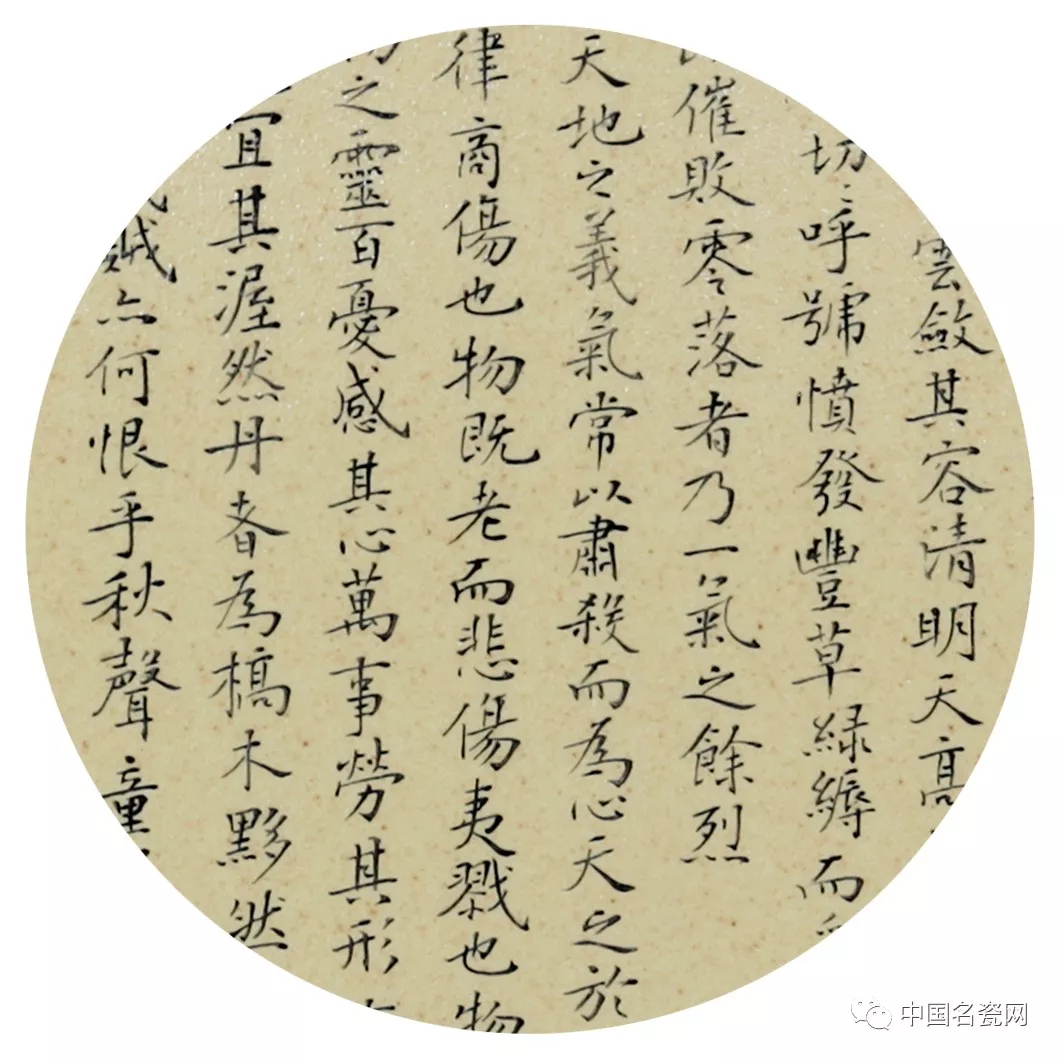 雲斂其容清明天高
切〻呼號憤發豐草緑縟而
催敗零落者乃一氣之餘烈
天地之義氣常以肅殺而為心天之於
律商傷也物既老而悲傷夷戮也物
之靈百憂感其心萬事勞其形
宜其渥然丹者為槁木黟然
戕亦何恨乎秋聲童
中国名瓷网